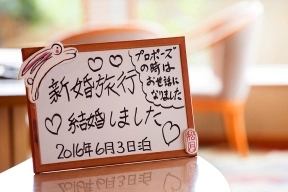 新婚旅行
プロポーズ
の時は
お世話に
なりました
結婚しました
2016年6月3日泊